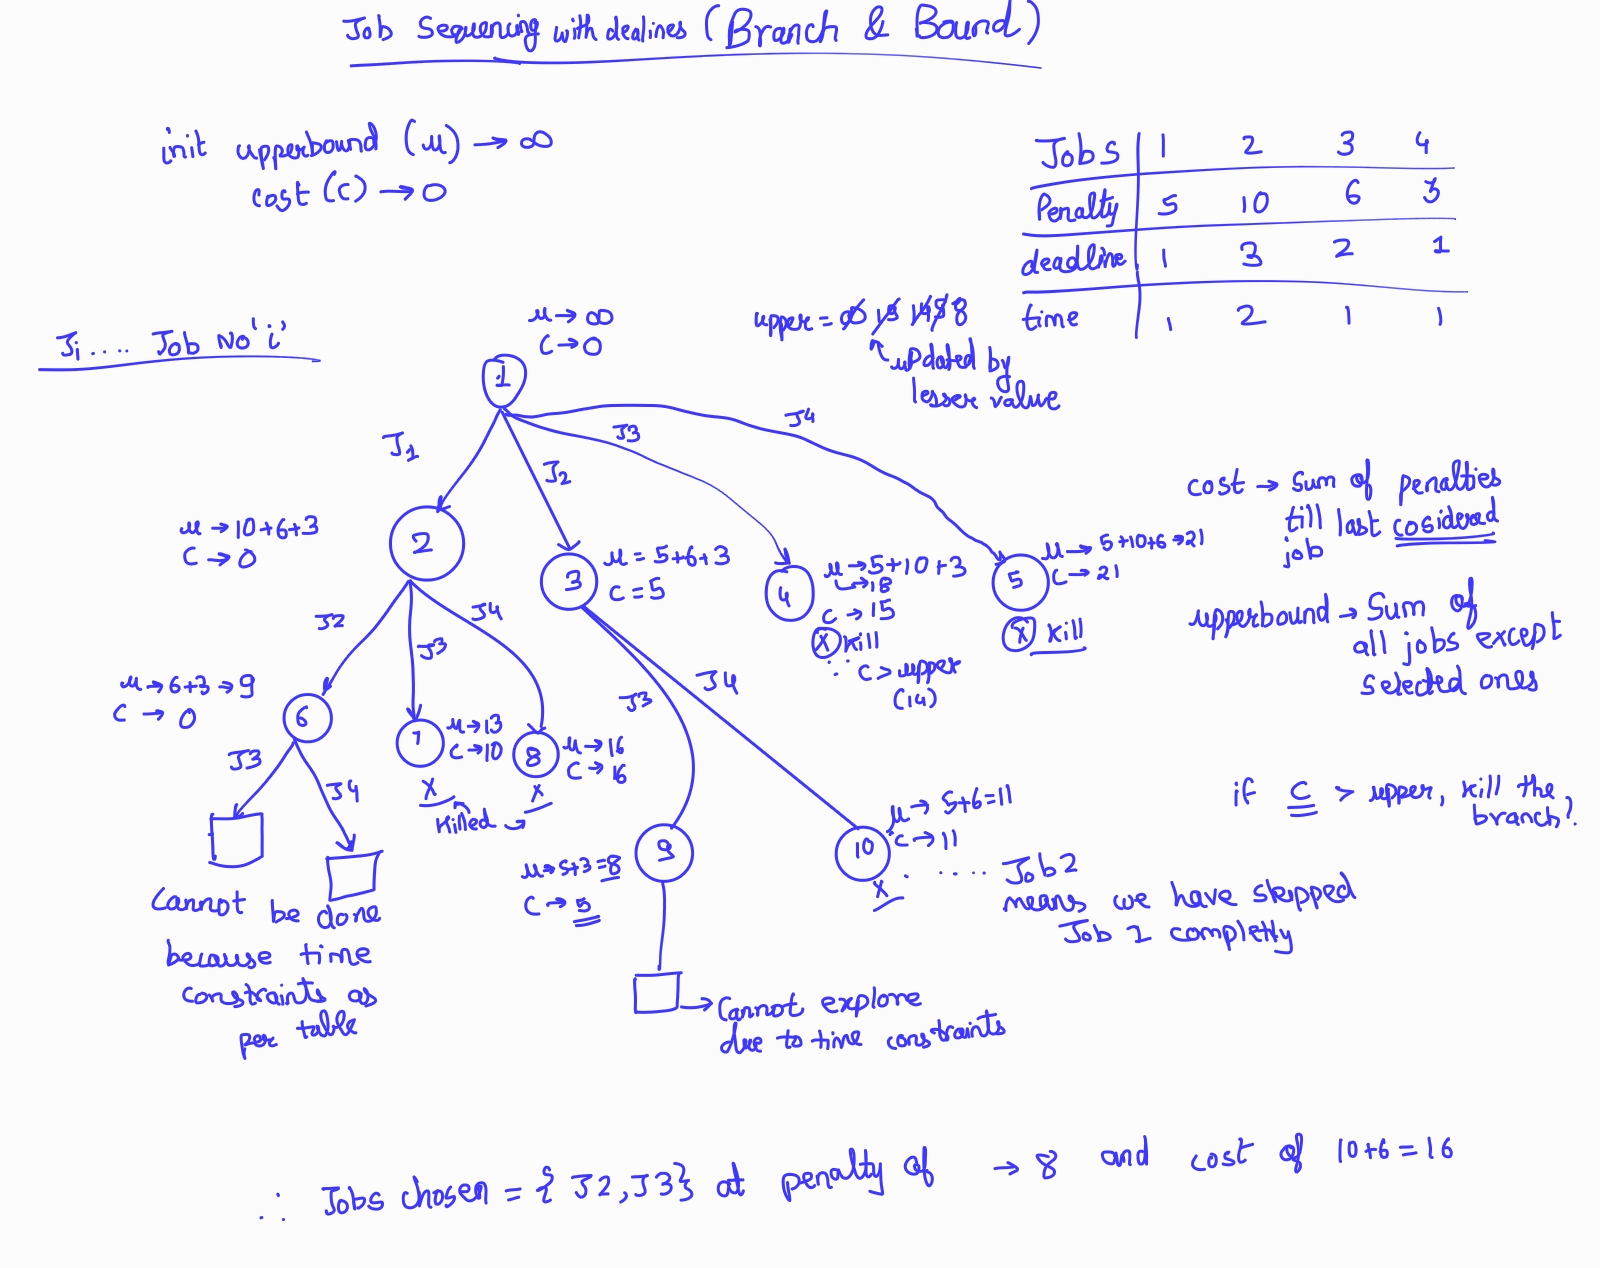 Job Sequencing with dealines (Branch & Bound)
init upperbound (u) → ∞
cost (c) → 0
Jobs 1 2 3 4
Penalty 5 10 6 3
deadline 1 3 2 1
time 1 2 1 1
Ji .... Job No 'i'
u → ∞
C → 0
upper = ∞ 19 14 9 8
updated by
lesser value
1
J1
J2
J3
J4
cost → Sum of penalties
till last cosidered
job
upperbound → Sum of
all jobs except
selected ones
if C > upper, kill the
branch?
u → 10+6+3
C → 0
2
3
u = 5+6+3
C = 5
4
u → 5+10+3
↳ 18
C → 15
X kill
∵ C > upper
(14)
5
u → 5+10+6 → 21
C → 21
X kill
J2
J3
J4
J3
J4
u → 6+3 → 9
C → 0
6
7
u → 13
C → 10
X
8
u → 16
C → 16
X
Killed
J3
J4
Cannot be done
because time
constraints as
per table
9
u → 5+3 = 8
C → 5
10
u → 5+6=11
C → 11
X
..... Job 2
means we have skipped
Job 1 completly
Cannot explore
due to time constraints
∴ Jobs chosen = { J2, J3} at penalty of → 8 and cost of 10+6 = 16